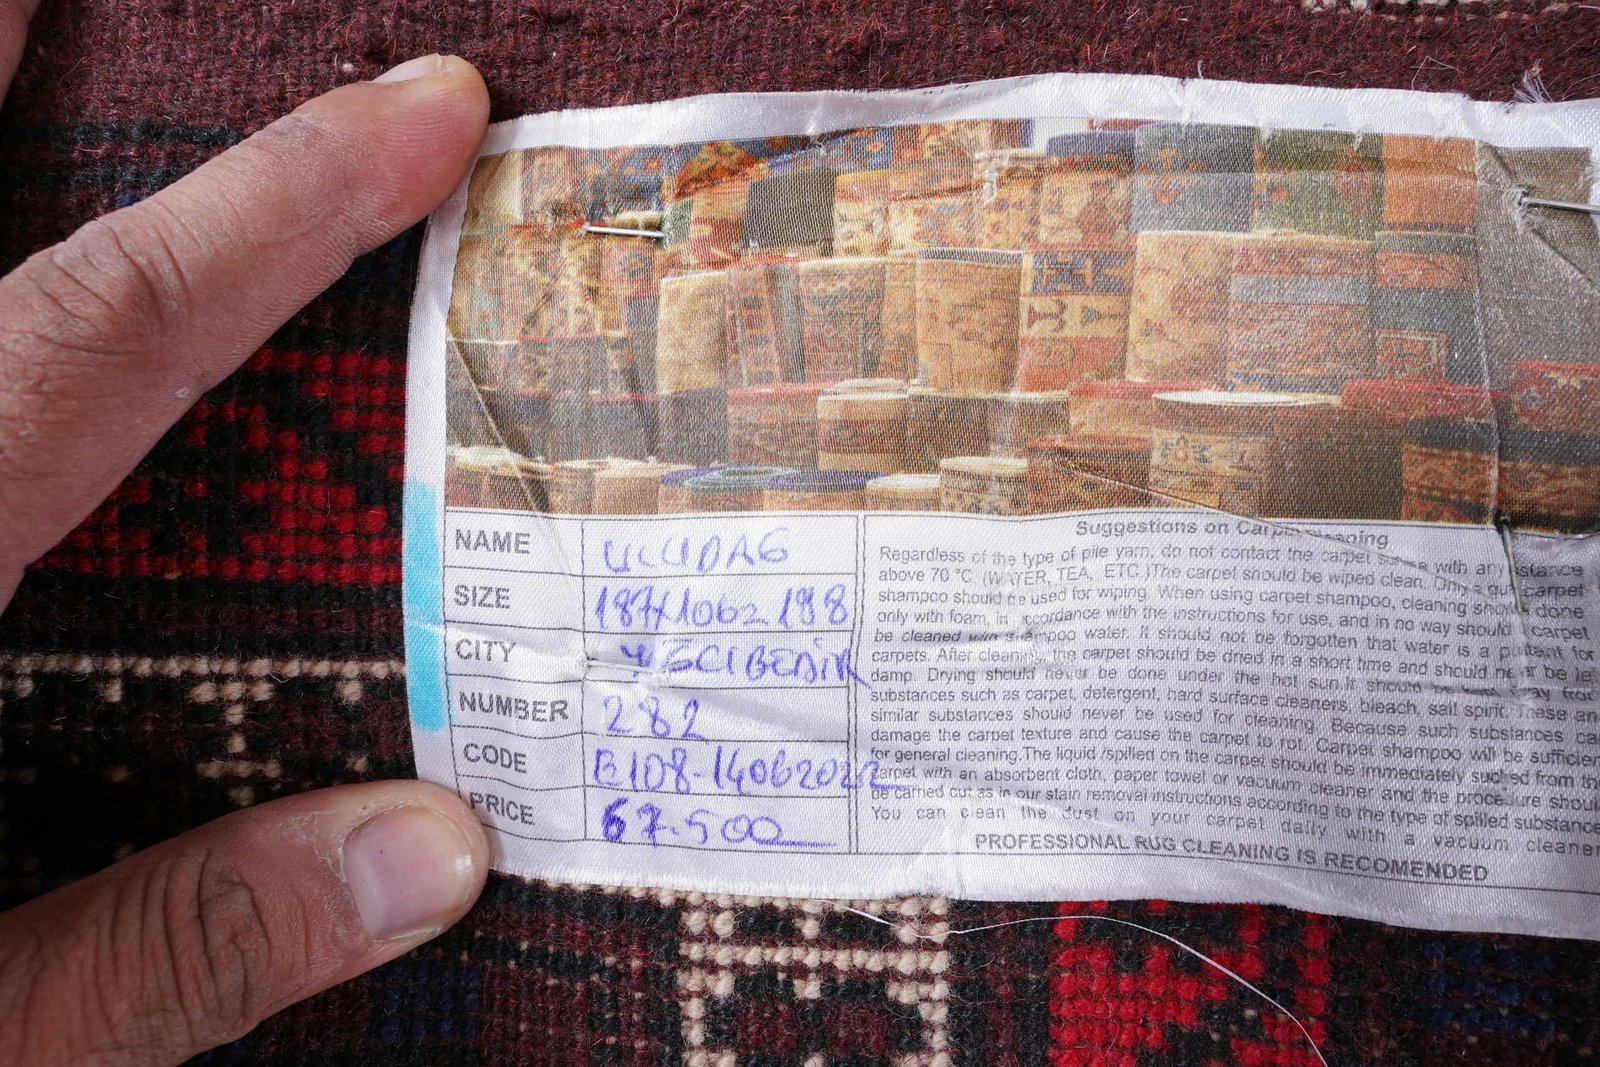 NAME ULUDAG
SIZE 187X106=198
CITY YAĞCIBEDİR
NUMBER 282
CODE B108-14062022
PRICE 67.500
Suggestions on Carpet Cleaning
Regardless of the type of pile yarn, do not contact the carpet with any
above 70 °C (WATER, TEA, ETC.)The carpet should be wiped clean. Only a carpet
shampoo should be used for wiping. When using carpet shampoo, cleaning should done
only with foam, in accordance with the instructions for use, and in no way should carpet
be cleaned with shampoo water. It should not be forgotten that water is a for
carpets. After cleaning, the carpet should be dried in a short time and should never be
damp. Drying should never be done under the hot sun.It should be kept away
substances such as carpet, detergent, hard surface cleaners, bleach, salt spirit. These
similar substances should never be used for cleaning. Because such substances
damage the carpet texture and cause the carpet to rot. Carpet shampoo will be
for general cleaning.The liquid /spilled on the carpet should be immediately sucked from
carpet with an absorbent cloth, paper towel or vacuum cleaner and the procedure
be carried out as in our stain removal instructions according to the type of spilled
You can clean the dust on your carpet daily with a vacuum cleaner
PROFESSIONAL RUG CLEANING IS RECOMENDED